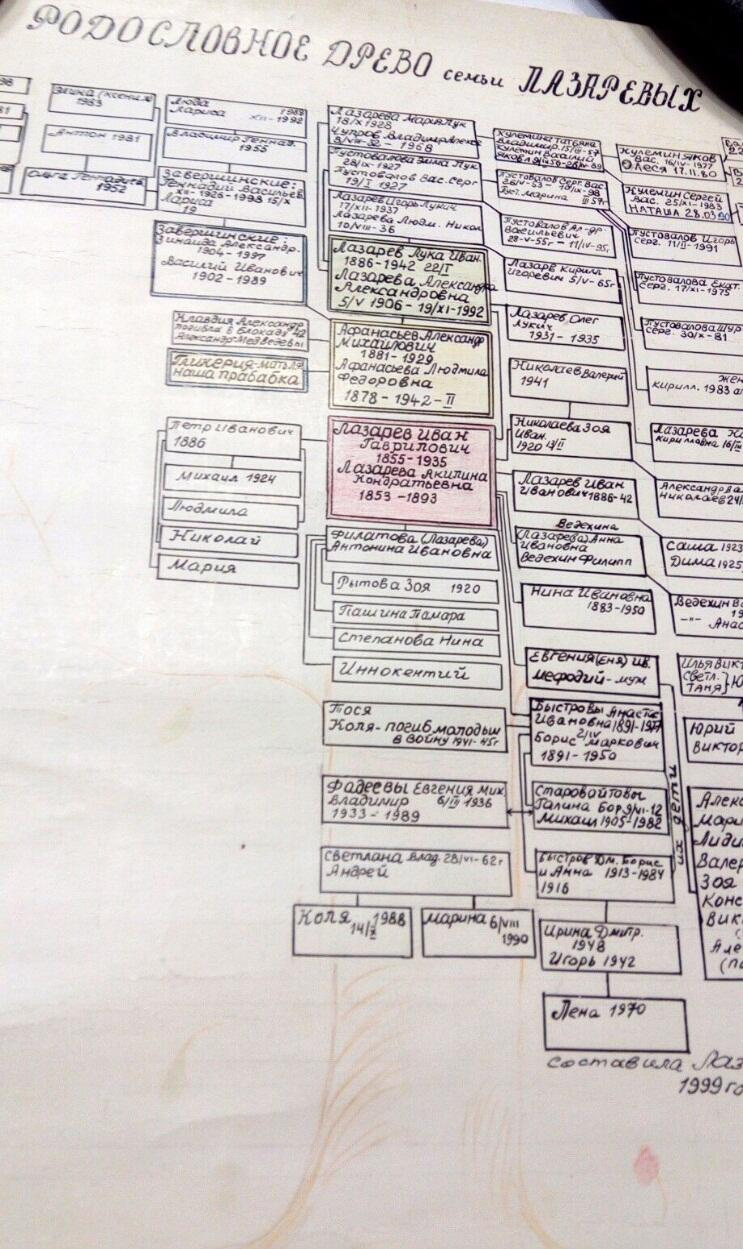 РОДОСЛОВНОЕ ДРЕВО семьи ЛАЗАРЕВЫХ
1983
Антон 1981
1952
Люда 1988
Лариса XII-1992
Владимир Геннад.
1955
Завершинские:
Геннадий Василье
XII-1926-1998 15/X
Лариса
19
Завершинские:
Зинаида Александр.
1904-1997
Василий Иванович
1902-1989
Клавдия Александр
погибли в блокаду 42
Александр Медведевы
Гликерия-мать Л.Ф
наша прабабка
Петр Иванович
1886
Михаил 1924
Людмила
Николай
Мария
Лазарева Мария Лук
18/X 1928
Чупров Владимир
8/VIII-32 - 1968
Пустовалова Зина Лук
28/IX-1927
Пустовалов Вас. Серг
19/I 1927
Лазарев Игорь Лукич
17/XII-1937
Лазарева Людм. Никол
10/VIII-36
Лазарев Лука Иван.
1886-1942 22/I
Лазарева Александра
Александровна
5/V 1906-19/XI-1992
Афанасьев Александр
Михайлович
1881-1929
Афанасьева Людмила
Федоровна
1878-1942-II
Лазарев Иван
Гаврилович
1855-1935
Лазарева Акилина
Кондратьевна
1853-1893
Филатова (Лазарева)
Антонина Ивановна
Рытова Зоя 1920
Пашина Тамара
Степанова Нина
Иннокентий
Тося
Коля-погиб молодым
в войну 1941-45г
Фадеевы Евгения Мих.
Владимир 6/III 1936
1933-1989
Светлана Влад. 28/VI-62г
Андрей
Коля 1988
14/X
Марина 6/VIII
1990
Кулемина Татьяна
Пустовалов Серг. Вас
Пуст. Марина III 57г
Пустовалов Ал-др.
Васильевич
28-V-55г - 11/IV-95г.
Лазарев Кирилл
Игоревич 5/V-65г
Лазарев Олег
Лукич
1931-1935
Николаев Валерий
1941
Николаева Зоя
Иван.
1920 13/II
Лазарев Иван
Иванович 1886-42
Ведехина
(Лазарева) Анна
Ивановна
Ведехин Филипп
Нина Ивановна
1883-1950
Евгения (Еня) Ив.
Мефодий-муж
Быстровы Анаста
Ивановна 1891-1977
2/IV
Борис Маркович
1891-1950
Старовойтовы
Галина Бор 9/VI-12
Михаил 1905-1982
Быстров Дм. Борис
и Анна 1913-1984
1916
их дети
Ирина Дмитр.
1948
Игорь 1942
Лена 1970
Кулемин Яков
Вас. 16/IV-1977
Олеся 17.11.80
Кулемин Сергей
Вас. 25/XI-1983
Наташа 28.03.90
Пустовалов Игорь
Серг. 11/II-1991
Пустовалова Екат.
Серг. 17/XI-1975
Пустовалова Шур
Серг. 30/X-81
Жен
Кирилл. 1983
Лазарева
Кирилловна
Александр Ва
Николаев
Саша 1923
Дима 1925
Ведехин В
Илья Викт
Светл.
Таня
Юрий
Виктор
Алек
Мари
Лиди
Валер
Зоя
Конс
Вик
Але
составила Лаз
1999го